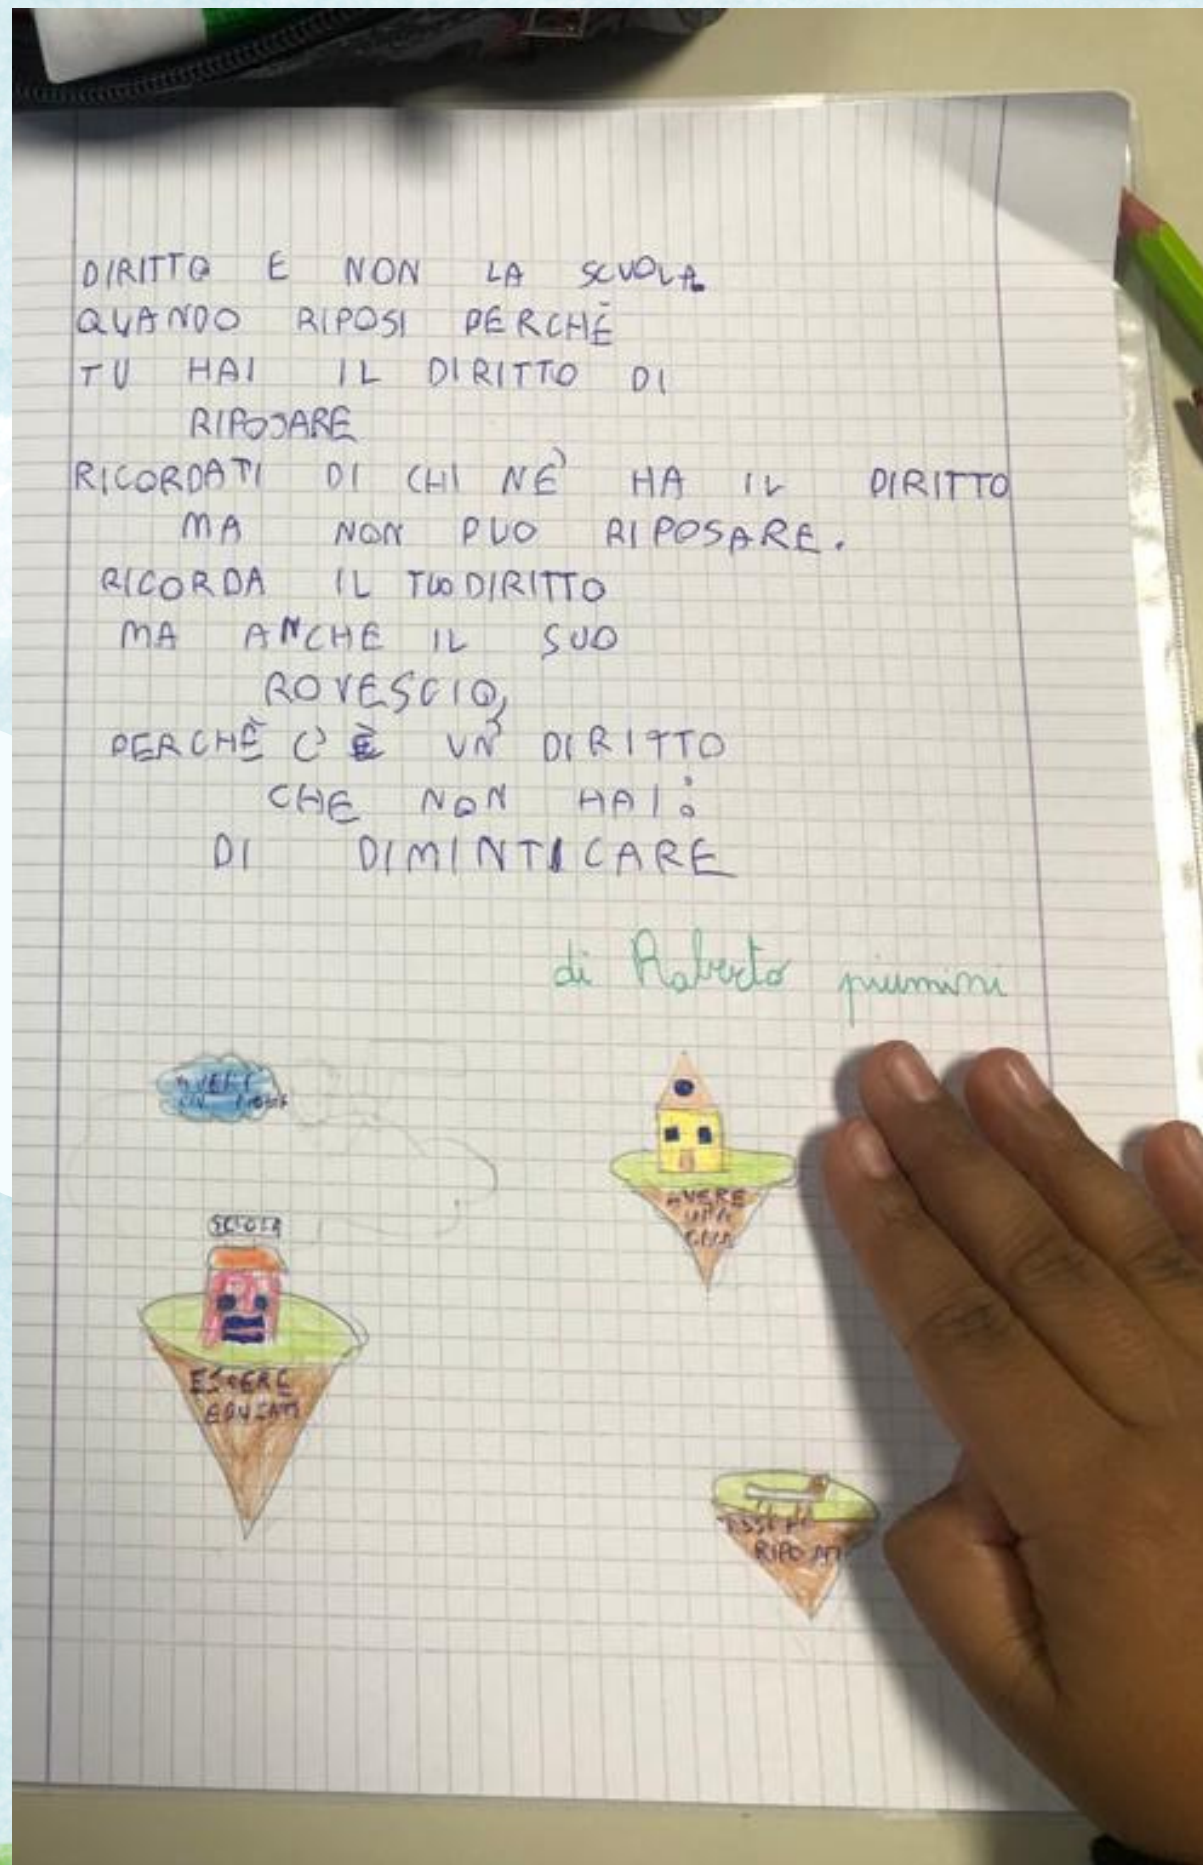 DIRITTO E NON LA SCUOLA
QUANDO RIPOSI PERCHÉ
TU HAI IL DIRITTO DI
RIPOSARE
RICORDATI DI CHI NÈ HA IL DIRITTO
MA NON PUO RIPOSARE.
RICORDA IL TUO DIRITTO
MA ANCHE IL SUO
ROVESCIO,
PERCHÈ C'È UN DIRITTO
CHE NON HAI:
DI DIMINTICARE
di Roberto piumini
AVERE
UN
AVERE
UNA
CASA
SCUOLA
ESSERE
EDUCATI
RIPOSATI